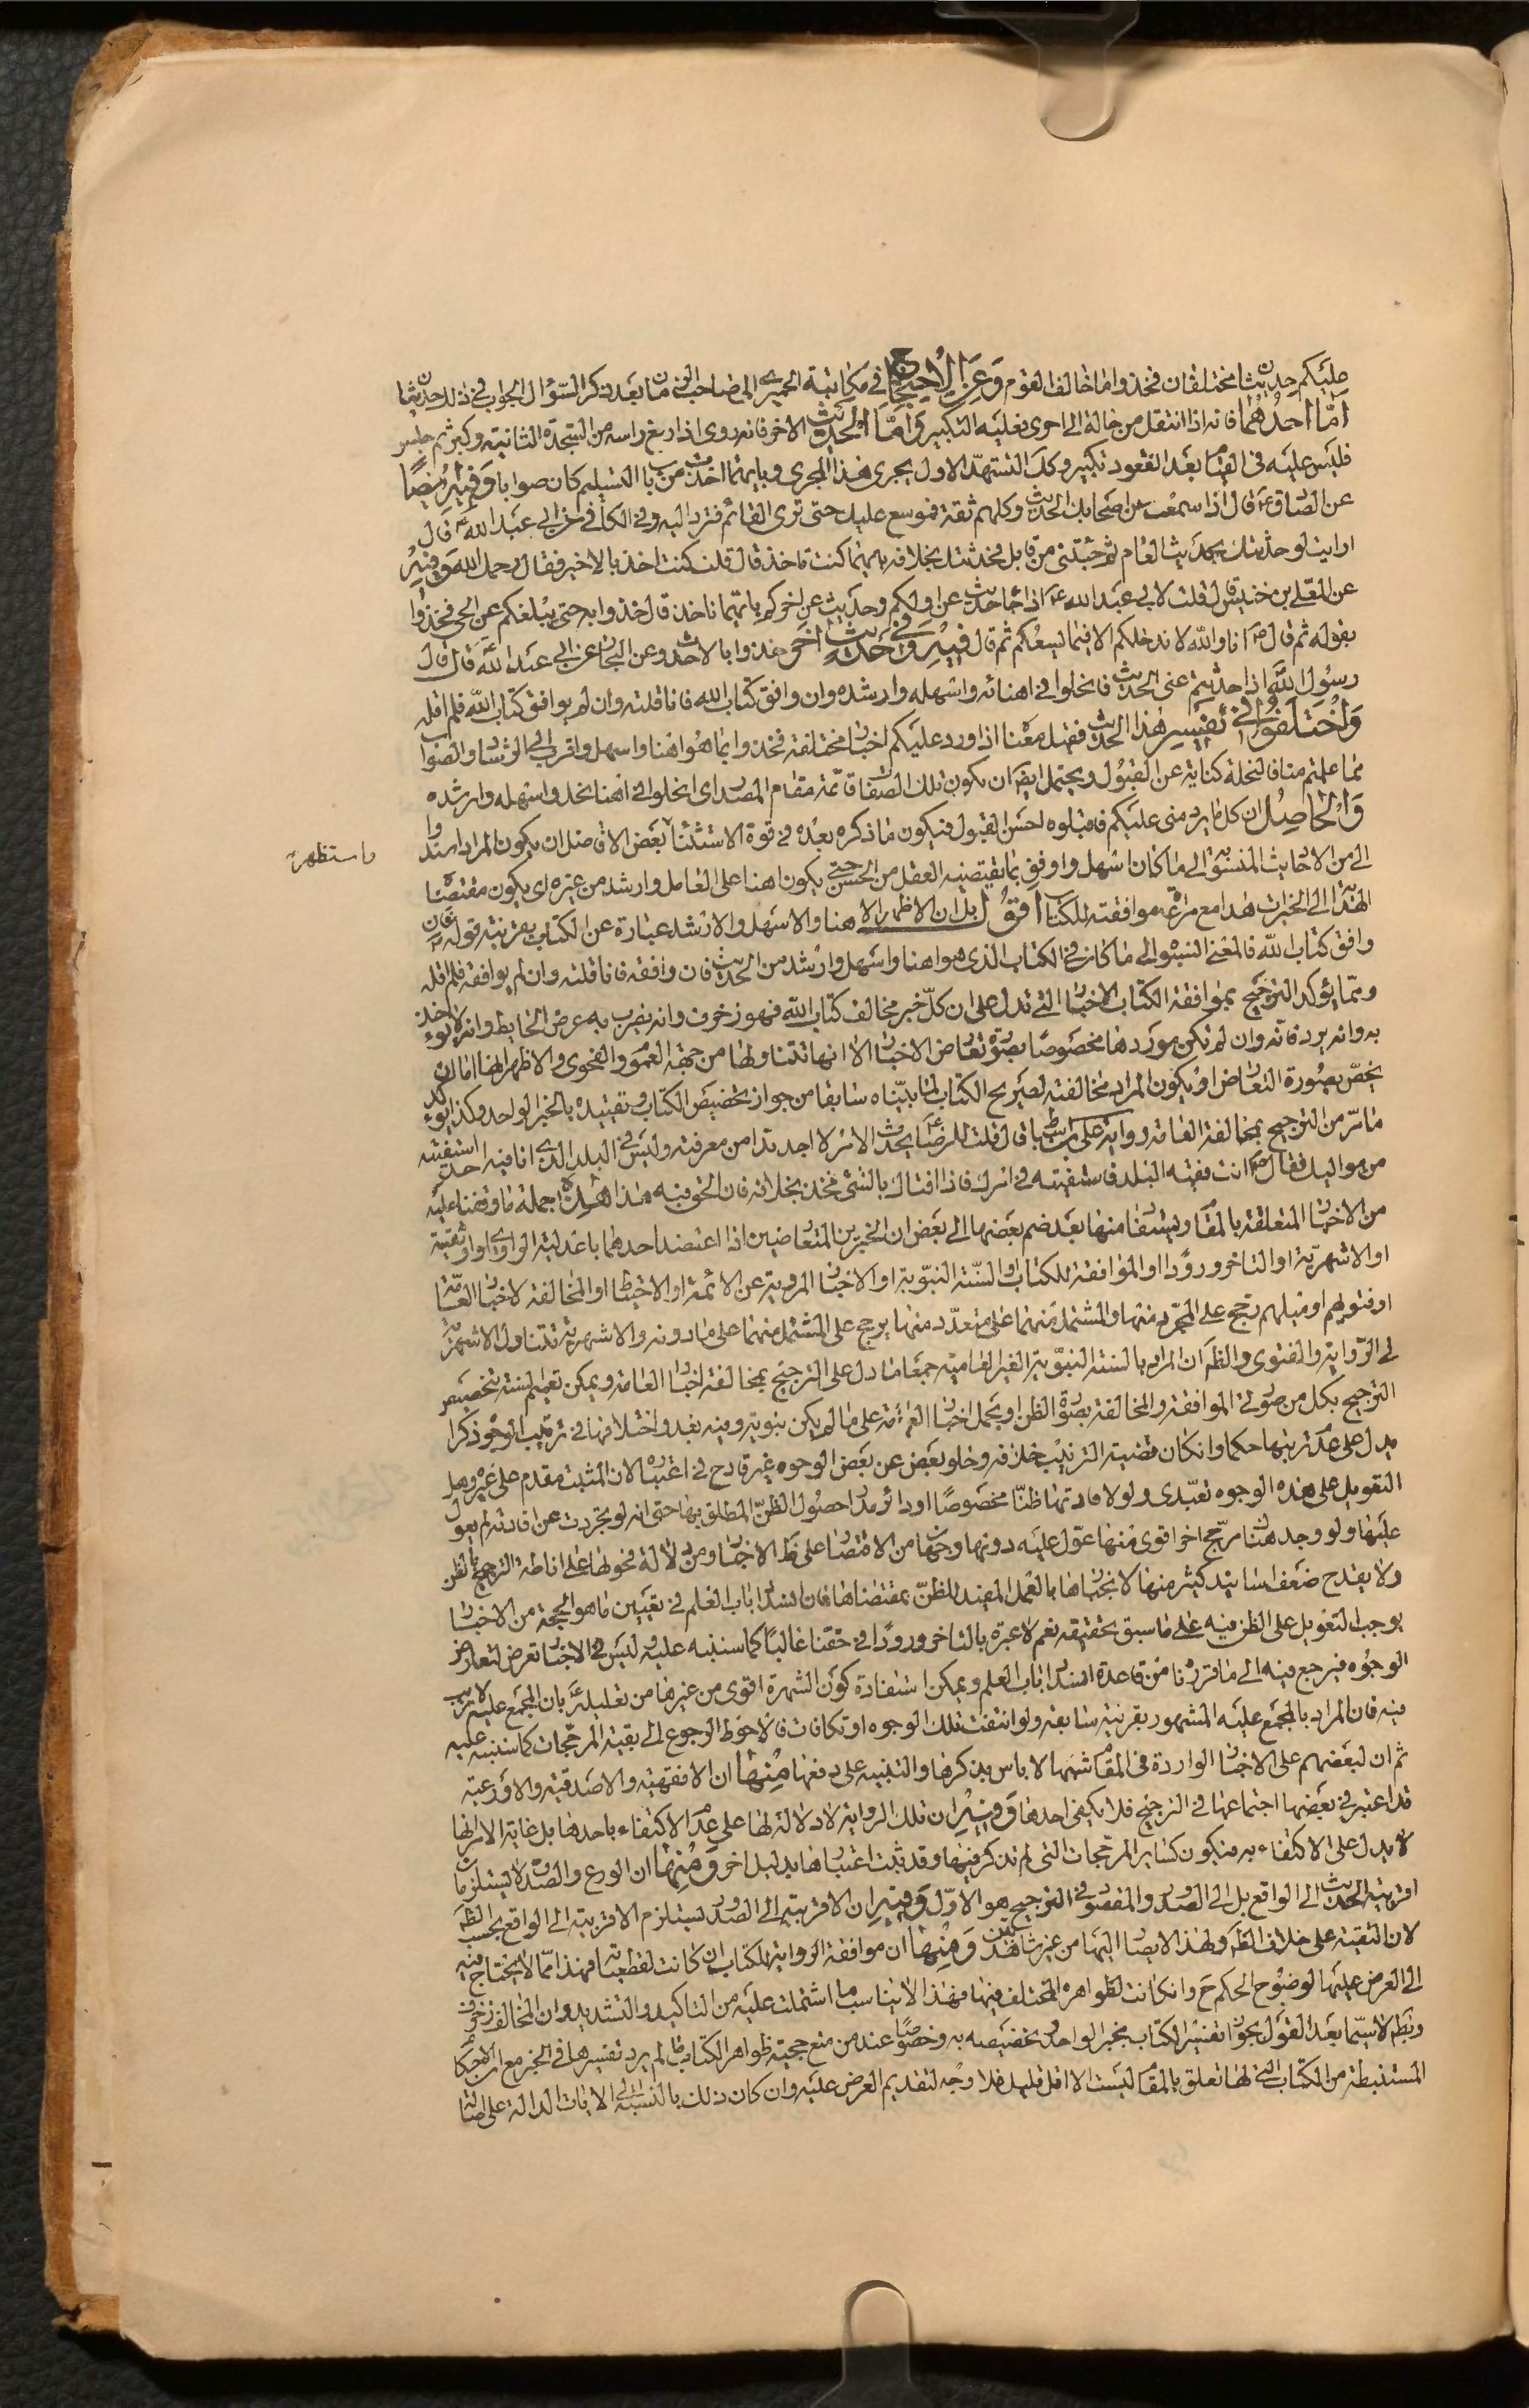 عليكم حديثان مختلفان فخذوا ما خالف القوم وعن الاحتجاج في مكاتبة الحميرى الى صاحب الزمان بعد ذكر السؤال الجواب في ذلك حديثان
اما احدهما فانه اذا انتقل من حالة الى اخرى فعليه التكبير واما الحديث الاخر فانه روى اذا رفع راسه من السجدة الثانية وكبر ثم جلس
فليس عليه في القيام بعد القعود تكبير وكذلك التشهد الاول يجرى هذا المجرى وبايهما اخذت من باب التسليم كان صوابا وفيه ايضا
عن الصادق ع قال اذا سمعت من اصحابك الحديث وكلهم ثقة فموسع عليك حتى ترى القائم فترد اليه وفي الكافي عن ابى عبد الله ع قال
ارايت لو حدثتك بحديث العام ثم جئتنى من قابل فحدثتك بخلافه بايهما كنت تاخذ قال قلت كنت اخذ بالاخير فقال رحمك الله وفيه
عن المعلى بن خنيس قال قلت لابى عبد الله ع اذا جاء حديث عن اولكم وحديث عن اخركم بايهما ناخذ قال خذوا به حتى يبلغكم عن الحى فخذوا
بقوله ثم قال ع انا والله لا ندخلكم الا فيما يسعكم ثم قال فيه وفي حديث اخر خذوا بالاحدث وعن البحار عن ابى عبد الله ع قال قال
رسول الله ص اذا حدثتم عنى الحديث فانحلونى اهناه واسهله وارشده وان وافق كتاب الله فانا قلته وان لم يوافق كتاب الله فلم اقله
واختلفوا في تفسير هذا الحديث فقيل معناه اذا ورد عليكم اخبار مختلفة فخذوا بما هو اهنا واسهل واقرب الى الرشاد والصواب
مما علمتم منا فالنحلة كناية عن القبول ويحتمل ايضا ان يكون تلك الصفات قائمة مقام المصدر اى انحلونى اهنا نحل واسهله وارشده
والحاصل ان كل ما يرد منى عليكم فاقبلوه احسن القبول فيكون ما ذكره بعده في قوة الاستثناء بعض الافاضل ان يكون المراد استدوا
واستظهر
الى من الاحاديث المنسوبة الى ما كان اسهل واوفق بما يقتضيه العقل من الحسن حتى يكون اهنا على العامل وارشد من غيره اى يكون مقتضيا
الهداية الى الخيرات هذا مع مراعة موافقته للكتاب اقول بل ان الاظهر الاهنا والاسهل والارشد عبارة عن الكتاب بقرينة قوله فان
وافق كتاب الله فالمعنى انسبوا الى ما كان في الكتاب الذى هو اهنا واسهل وارشد من الحديث فان وافقه فانا قلته وان لم يوافقه فلم اقله
ومما يؤكد الترجيح بموافقة الكتاب الاخبار التى تدل على ان كل خبر مخالف كتاب الله فهو زخرف وانه يضرب به عرض الحايط وانه لا يؤخذ
به وانه يرد فانه وان لم تكن موردها مخصوصا بصورة تعارض الاخبار الا انها تتناولها من جهة العموم والفحوى والاظهر انها اما ان
يخص بصورة التعارض او يكون المراد مخالفته لصريح الكتاب لما بيناه سابقا من جواز تخصيص الكتاب وتقييده بالخبر الواحد وكذا يؤكد
ما مر من الترجيح بمخالفة العامة رواية على بن اسباط قال قلت للرضا ع يحدث الامر لا اجد بدا من معرفته وليس في البلد الذى انا فيه احد استفتيه
من مواليك فقال ع ائت فقيه البلد فاستفته في امرك فاذا افتاك بالشئ فخذ بخلافه فان الحق فيه هذا هذه جملة ما وقفنا عليه
من الاخبار المتعلقة بالمقام ويستفاد منها بعد ضم بعضها الى بعض ان الخبرين المتعارضين اذا اعتضد احدهما باعدلية الراوى او اوثقيته
او الاشهرية او التاخر ورودا او الموافقة للكتاب او السنة النبوية او الاخبار المروية عن الائمة او الاحتياط او المخالفة لاخبار العامة
او فتويهم او ميلهم رجح على المجرد منها والمشتمل منهما على متعدد منها يرجح على المشتمل منهما على ما دونه والاشهرية تتناول الاشهرية
في الرواية والفتوى والظ ان المراد بالسنة النبوية الغير العامية جمعا ما دل على الترجيح بمخالفة اخبار العامة ويمكن تعميم السنة بتخصيص
الترجيح بكل من صورتى الموافقة والمخالفة بصورة الظن او يحمل اخبار العرض على ما لم يكن نبوية وفيه بعد واختلافها في ترتيب الوجوه ذكرا
يدل على عدم ترتبها حكما وان كان قضية الترتيب خلافه وخلو بعض عن بعض الوجوه غير قادح في اعتباره لان المثبت مقدم على غيره وهل
التعويل على هذه الوجوه تعبدى ولو لافادتها ظنا مخصوصا او دائر مدار حصول الظن المطلق بها حتى انه لو تجردت عن افادته لم يعول
عليها ولو وجد هناك مرجح اخر اقوى منها عول عليه دونها وجهان من الاقتصار على ظ الاخبار ومن دلالة فحواها على اناطة الترجيح بالظن
ولا يقدح ضعف اسانيد كثير منها لانجبارها بالعمل المفيد للظن بمقتضاها فان انسداد باب العلم في تعيين ما هو الحجة من الاخبار
يوجب التعويل على الظن فيه على ما سبق تحقيقه نعم لا عبرة بالتاخر ورودا في حقنا غالبا كما سننبه عليه وليس في الاخبار تعرض لتعارض
الوجوه فيرجع فيه الى ما قررنا من قاعدة انسداد باب العلم ويمكن استفادة كون الشهرة اقوى من غيرها من تعليله ع بان المجمع عليه لا ريب
فيه فان المراد بالمجمع عليه المشهور بقرينة سابقه ولو انتفت تلك الوجوه او تكافات فالاحوط الرجوع الى بقية المرجحات كما سننبه عليه
ثم ان لبعضهم على الاخبار الواردة في المقام شبها لا باس بذكرها والتنبيه على دفعها منها ان الافقهية والاصدقية والاورعية
قد اعتبر في بعضها اجتماعها في الترجيح فلا يكفى احدها وفيه ان تلك الرواية لا دلالة لها على عدم الاكتفاء باحدها بل غاية الامر انها
لا يدل على الاكتفاء به فيكون كساير المرجحات التى لم تذكر فيها وقد ثبت اعتبارها بدليل اخر ومنها ان الورع والصدق لا يستلزمان
اقربية الحديث الى الواقع بل الى الصدور والمقصود في الترجيح هو الاول وفيه ان الاقربية الى الصدور تستلزم الاقربية الى الواقع بحسب الظ
لان التقية على خلاف الظ ولهذا لا يصار اليها من غير شاهد يقين ومنها ان موافقة الرواية للكتاب ان كانت لقطعياته فهذا مما لا يحتاج فيه
الى العرض عليها لوضوح الحكم ح وان كانت لظواهره المختلف فيها فهذا لا يناسب ما اشتملت عليه من التاكيد والتشديد وان المخالف زخرف
وبطله لا سيما بعد القول بجواز تفسير الكتاب بخبر الواحد وتخصيصه به وخصوصا عند من منع حجية ظواهر الكتاب ما لم يرد تفسيرها في الخبر مع ان الاحكام
المستنبطة من الكتاب التى لها تعلق بالمقام ليست الا اقل قليل فلا وجه لتقديم العرض عليه وان كان ذلك بالنسبة الى الايات الدالة على اصالة